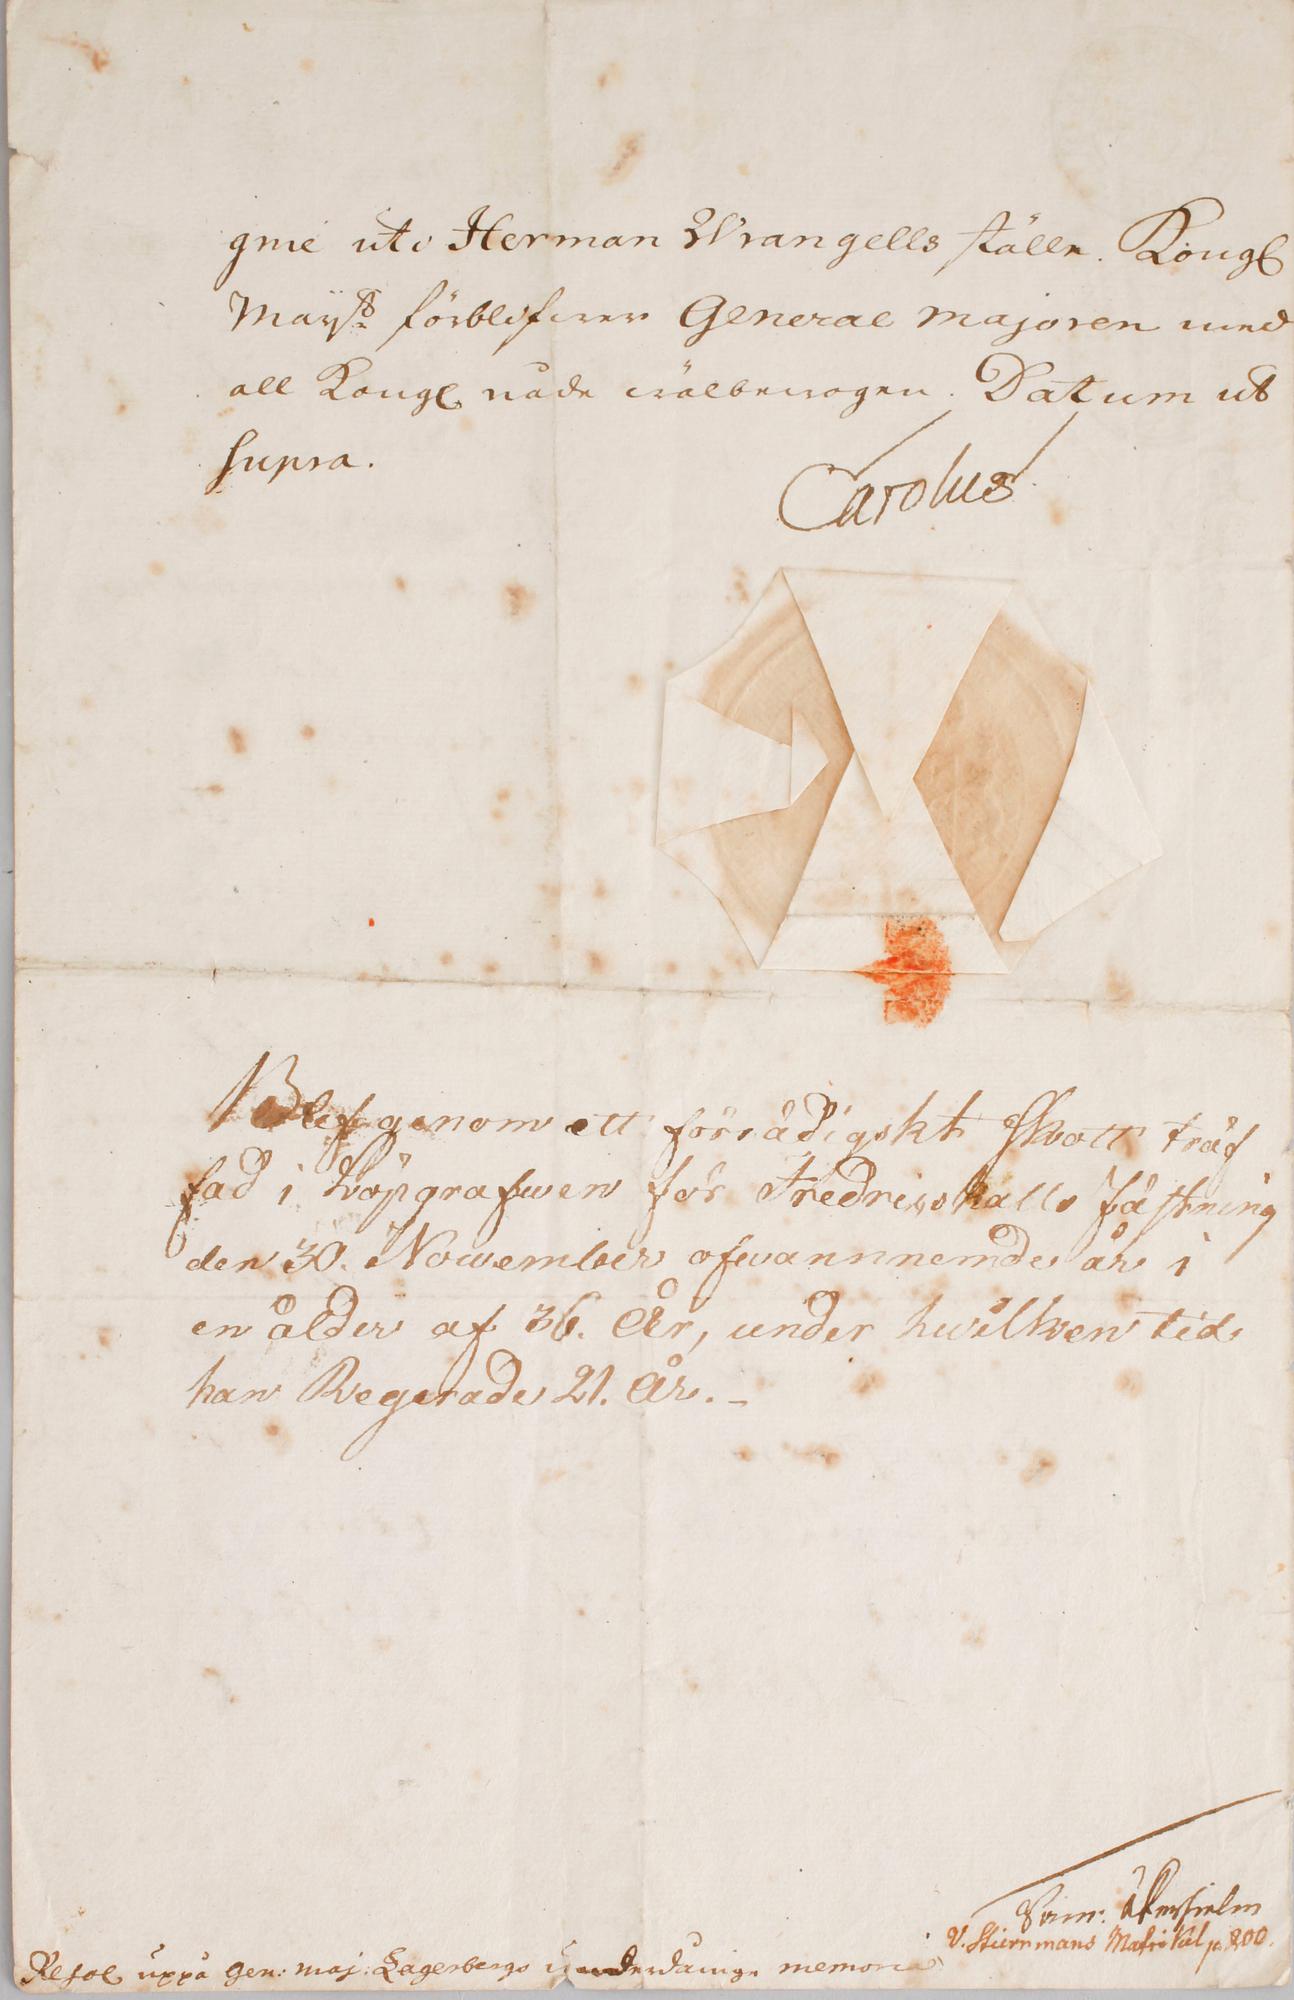 gnie uti Herman Wrangells ställe. Kongl
Maÿtt förblifwer General majoren med
all Kongl nåde wälbewogen. Datum ut
supra.
Carolus
Blef genom ett förrädigskt Skott träf
fad i Löpgrafwen för Fredrikshalls Fästning
den 30. Nowember ofwannnemde år i
en ålder af 36. År, under hwilken tid
han Regerade 21. År. -
Sam: Åkerhielm
V. Stiernmans Matrikul p. 800.
Resol uppå Gen: maj: Lagerbergs Underdånige memorial